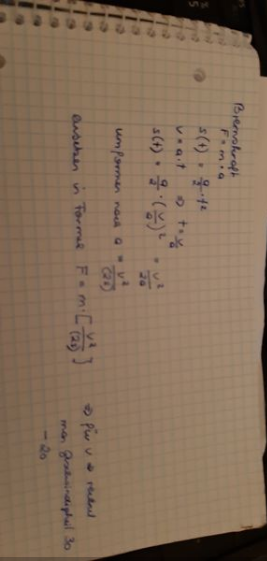 Bremskraft
F = m · a
s(t) = a/2 · t²
v = a · t ⇒ t = v/a
s(t) = a/2 · (v/a)² = v²/2a
umformen nach a = v²/(2s)
einsetzen in Formel F = m · [v²/(2s)]
⇒ für v ⇒
man Geschwindigkeit 30
- 20